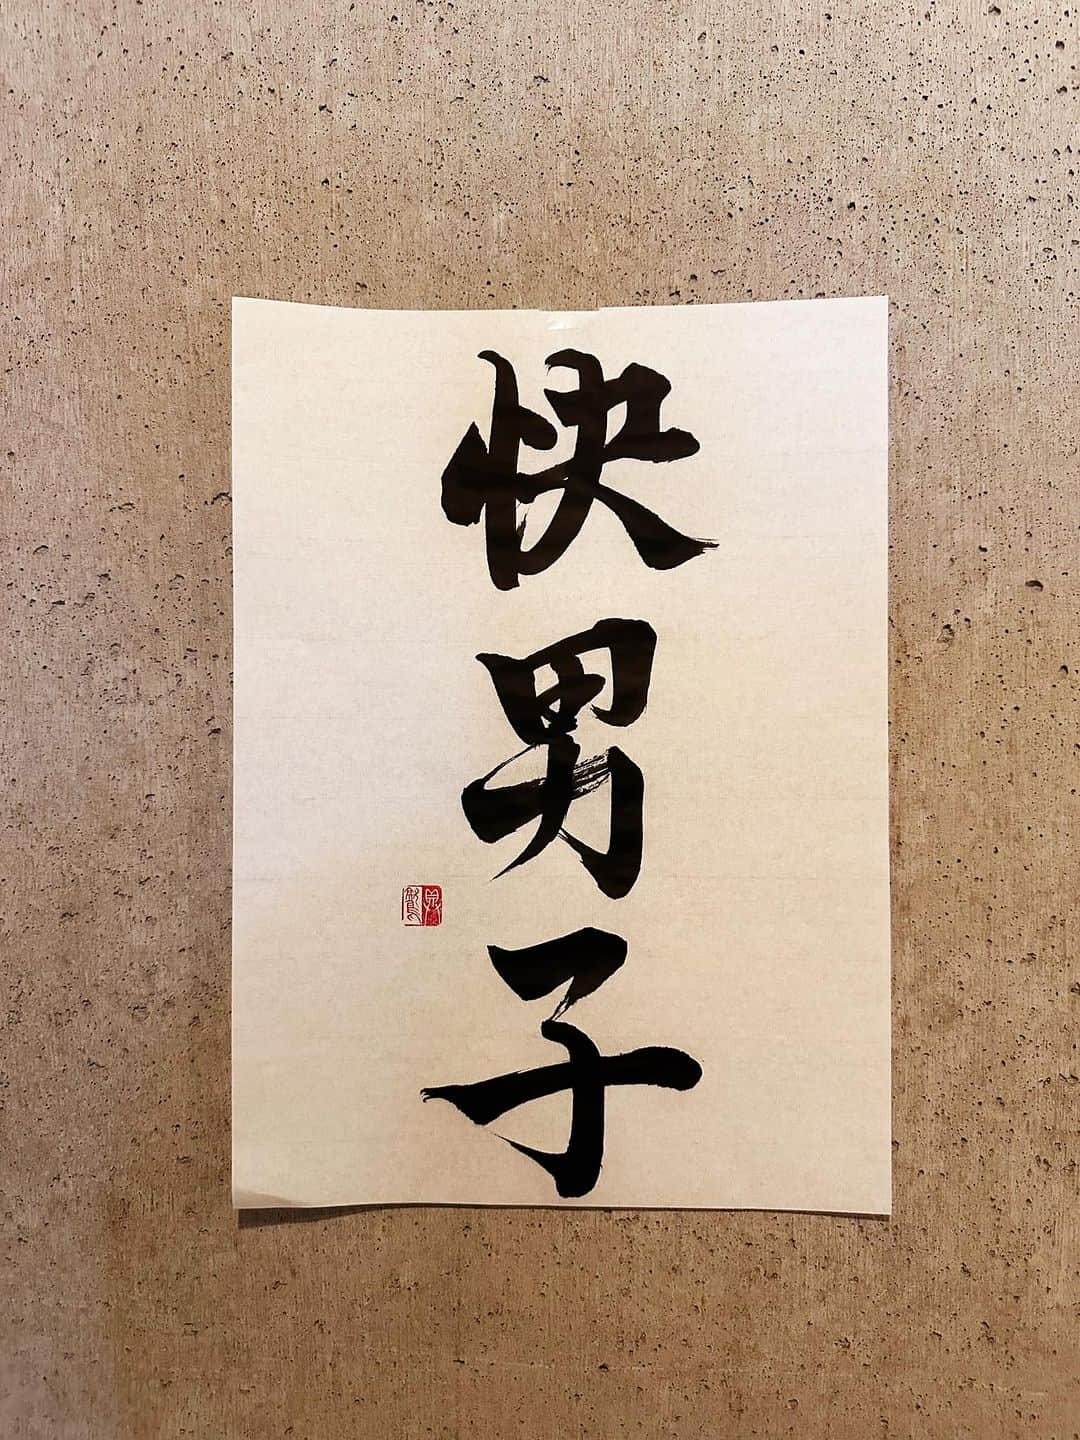 快男子